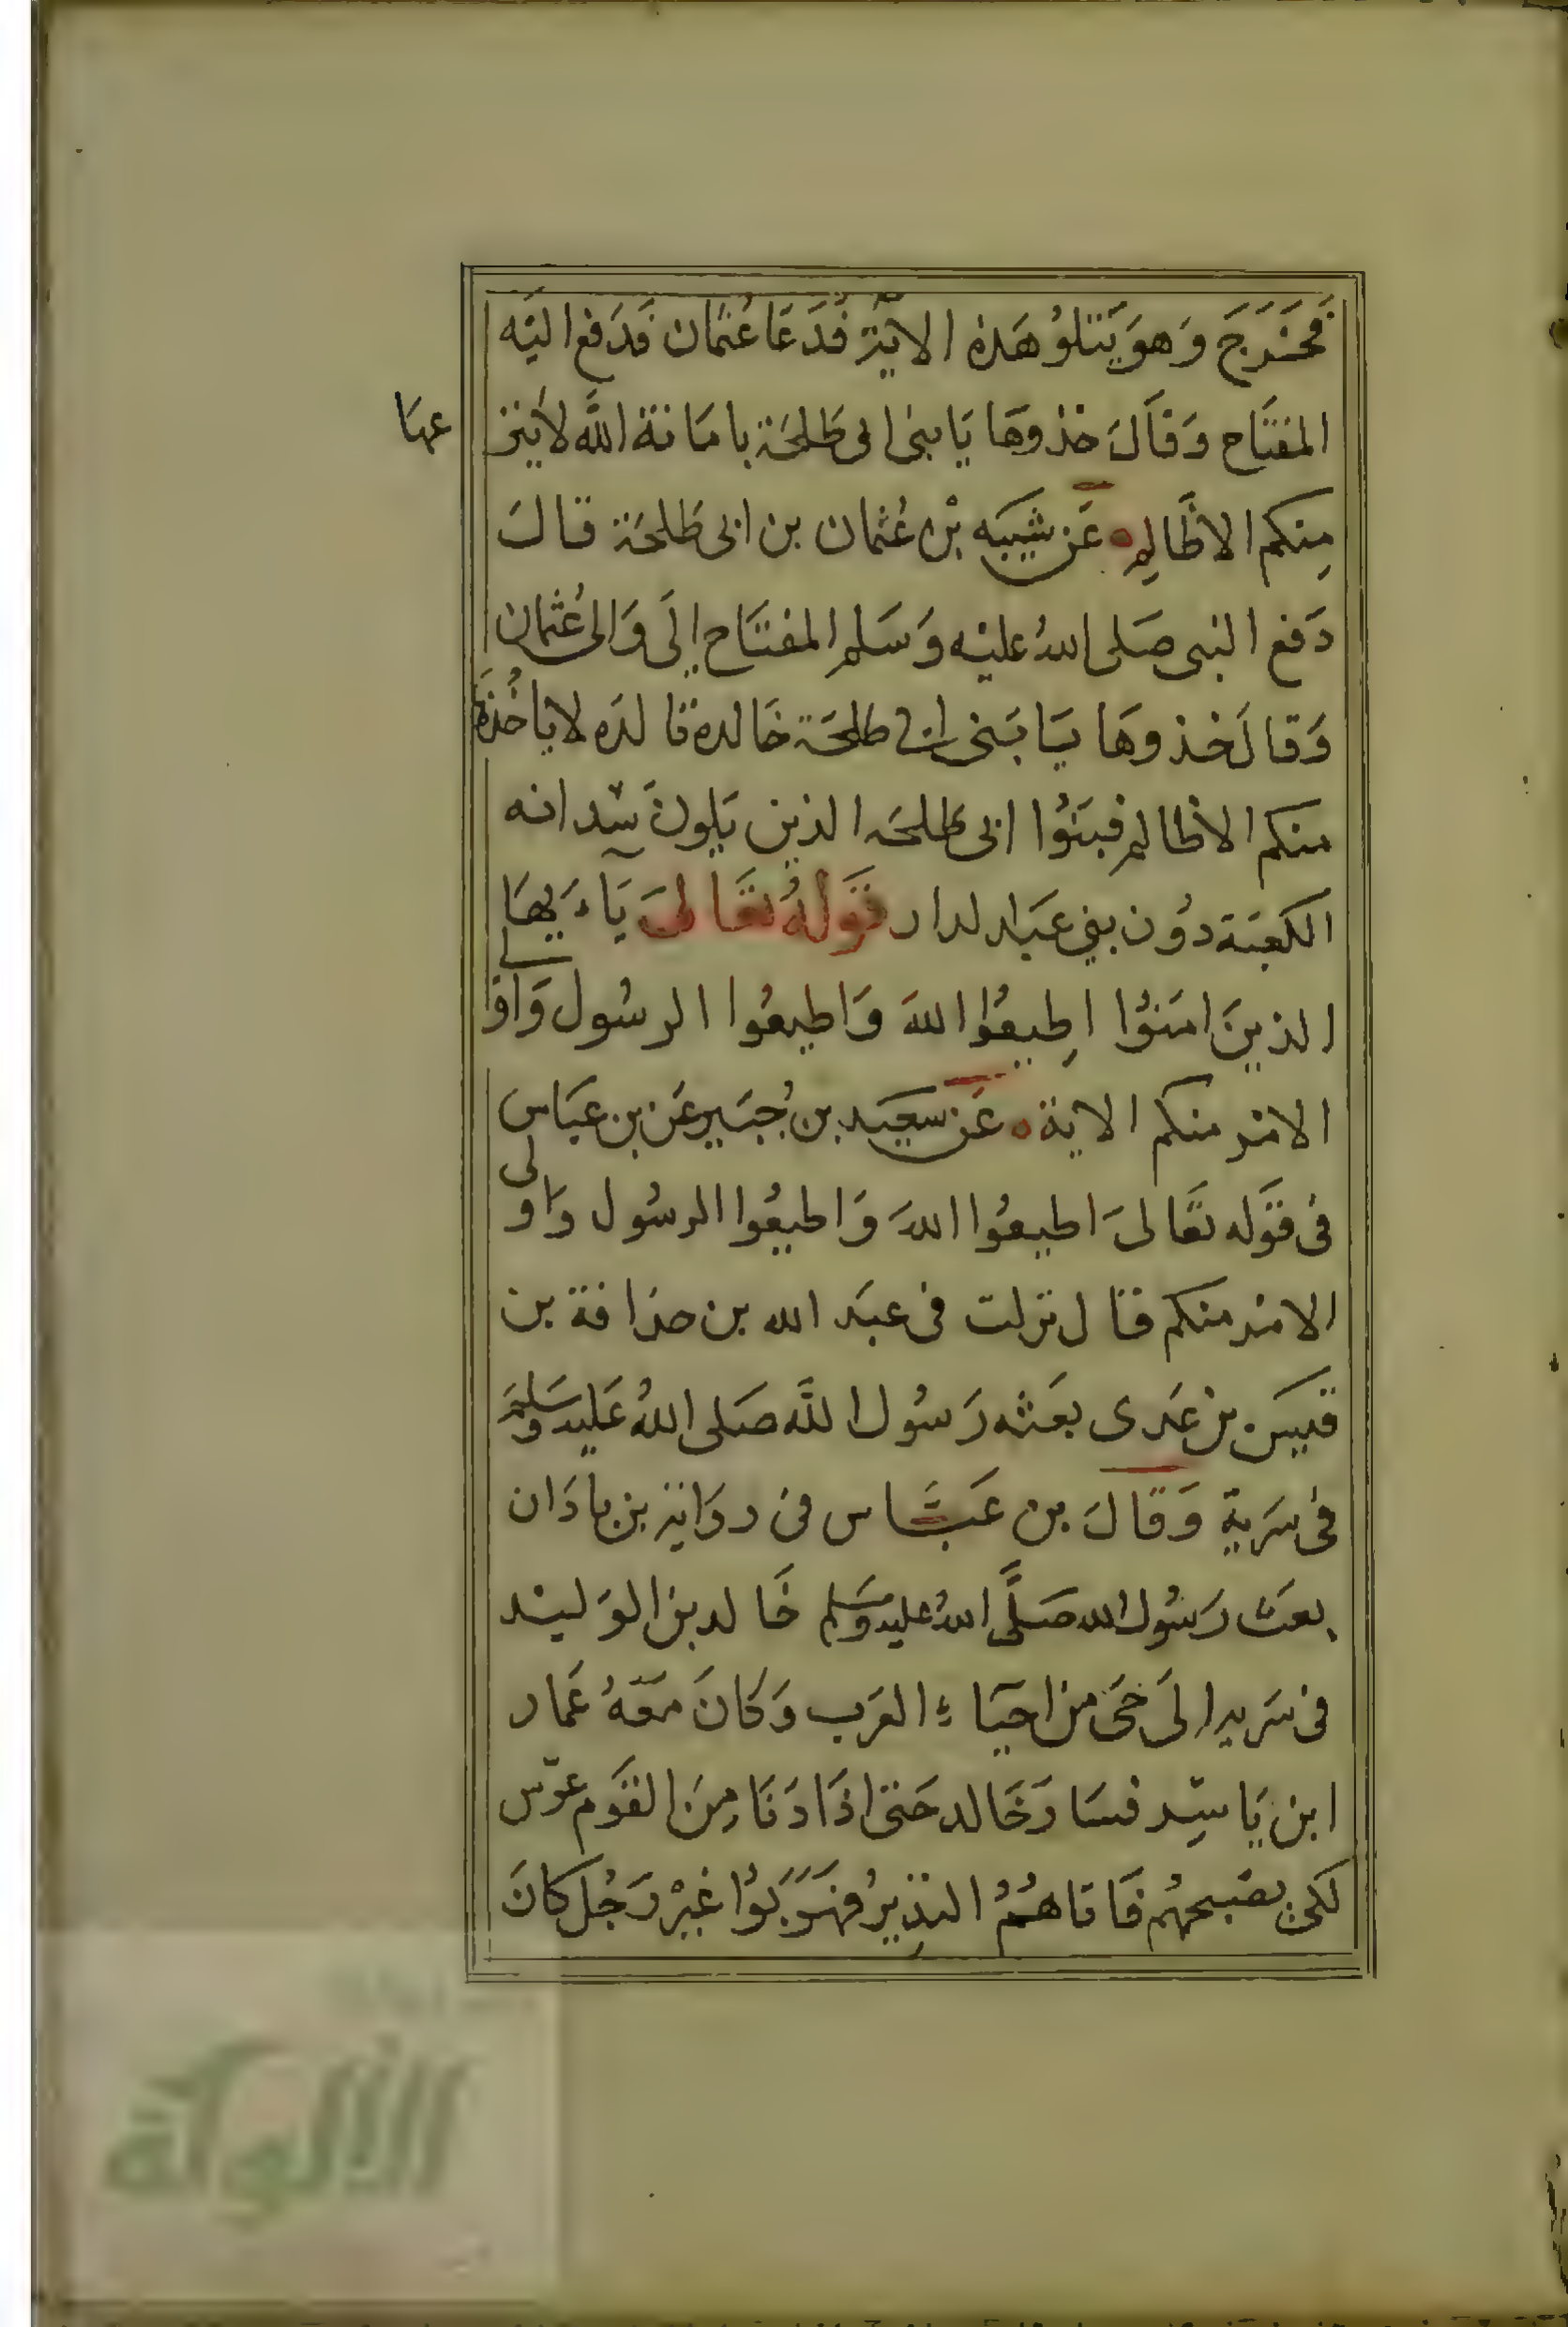 فَخَرَجَ وَهوَ يَتلوُ هَذه الايَة فَدَعَا عُثمان فَدَفع اليَه
المفتَاح وَقَالَ خذوهَا يَا بنى ابى طَلحَة بامَانة اللَّه لا يَنز عهَا
مِنكم الا ظَالِم عَن شيَبَه بْن عُثمان بن ابى طَلحَة قالَ
دَفع النبى صَلى اللهُ عليْه وَسَلم المفتَاح إلَى وَالى عُثمان
وَقالَ خذوهَا يَا بَنى ابى طلحَة خَالدة تالدَه لا ياخُذهَا
منكم الا ظالم فبَنوُا ابى طَلحَه الذين يَلونَ سدانه
الكعبَة دوُن بنى عبَد لدار قَولهُ تعَالىَ يَاءَيهَا
الذينَ امَنوُا اطِيعوُا اللهَ وَاطيعُوا الرسُول وَاولى
الامْر منكم الاية عَن سَعيَد بن جُبَير عَن بن عبَاس
فى قَوله تعَالىَ اطيعُوا اللهَ وَاطيعُوا الرسُول وَاولى
الامْر منكم قال نزلت فى عبَد الله بن حذافة بن
قيسَ بن عَدى بعَثه رَسُول اللَّه صَلى اللهُ عَليه وَسَلم
فى سَرية وَقالَ بن عَباس فى روَاية بن بادَان
بعَث رَسُول الله صَلَّى اللهُ عليه وَسَلم خَالد بن الوَليْد
فى سَريه الَى حَى من احيَاءِ العَرب وَكانَ معَهُ عَمار
ابن يَاسِر فسَار خَالد حَتى اذَا دَنَا مِنَ القَوم عرّس
لكى يصَبحهُم فَاتاهُمُ النذِيرُ فهَرَبوُا غيْر رَجُل كانَ
الألوكة